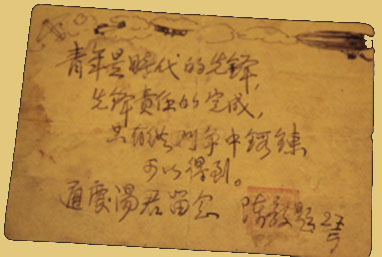 青年是時代的先鋒，
先鋒責任的完成，
只有從鬥争中鍛鍊
可以得到。
湯君留念 陳毅題